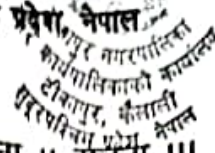 प्रदेश, नेपाल
टीकापुर नगरपालिका
नगर कार्यपालिकाको कार्यालय
टीकापुर, कैलाली
सुदूरपश्चिम प्रदेश नेपाल